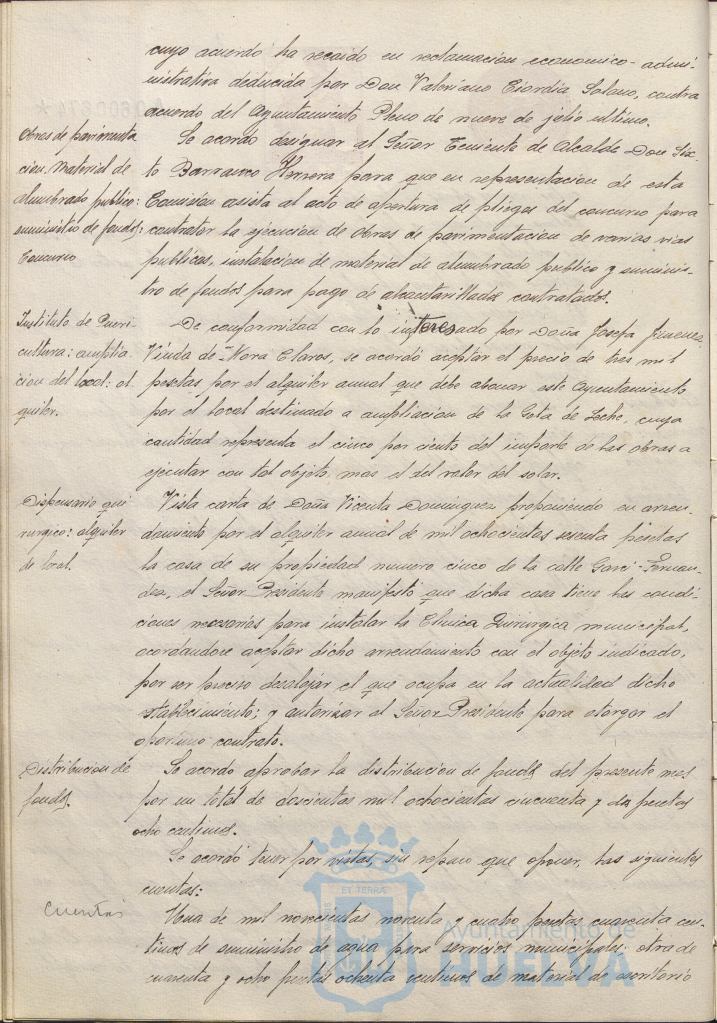 cuyo acuerdo ha recaido en reclamacion economico-admi-
nistrativa deducida por Don Valeriano Ciordia Solano, contra
acuerdo del Ayuntamiento Pleno de nueve de julio ultimo.
Obras de pavimenta
cion. Material de
alumbrado publico:
suministro de fondos:
Concurso
Se acordo designar al Señor Teniente de Alcalde Don Six
to Barranco Herrera para que en representacion de esta
Comision asista al acto de apertura de pliegos del concurso para
contratar la ejecucion de obras de pavimentacion de varias vias
publicas, instalacion de material de alumbrado publico y suminis-
tro de fondos para pago de alcantarillados contratados.
Instituto de Pueri
cultura: amplia
cion del local: al
quiler.
De conformidad con lo interesado por Doña Josefa Jimenez
Viuda de Mora Claros, se acordó aceptar el precio de tres mil
pesetas por el alquiler anual que debe abonar este Ayuntamiento
por el local destinado a ampliacion de la Gota de Leche, cuya
cantidad representa el cinco por ciento del importe de las obras a
ejecutar con tal objeto, mas el del valor del solar.
Dispensario qui
rurgico: alquiler
de local.
Vista carta de Doña Vicenta Dominguez proponiendo en arren-
damiento por el alquiler anual de mil ochocientas sesenta pesetas
la casa de su propiedad numero cinco de la calle Garci-Fernan-
dez, el Señor Presidente manifestó que dicha casa tiene las condi-
ciones necesarias para instalar la Clinica Quirurgica municipal,
acordandose aceptar dicho arrendamiento con el objeto indicado,
por ser preciso desalojar el que ocupa en la actualidad dicho
establecimiento; y autorizar al Señor Presidente para otorgar el
oportuno contrato.
Distribucion de
fondos.
Se acordo aprobar la distribucion de fondos del presente mes
por un total de doscientas mil ochocientas cincuenta y dos pesetas
ocho centimos.
Se acordó tener por vistas, sin reparo que oponer, las siguientes
cuentas:
Cuentas
Una de mil novecientas noventa y cuatro pesetas cuarenta cen-
timos de suministro de agua para servicios municipales: otra de
cuarenta y ocho pesetas ochenta centimos de material de escritorio
ET TERRÆ
Ayuntamiento de
HUELVA